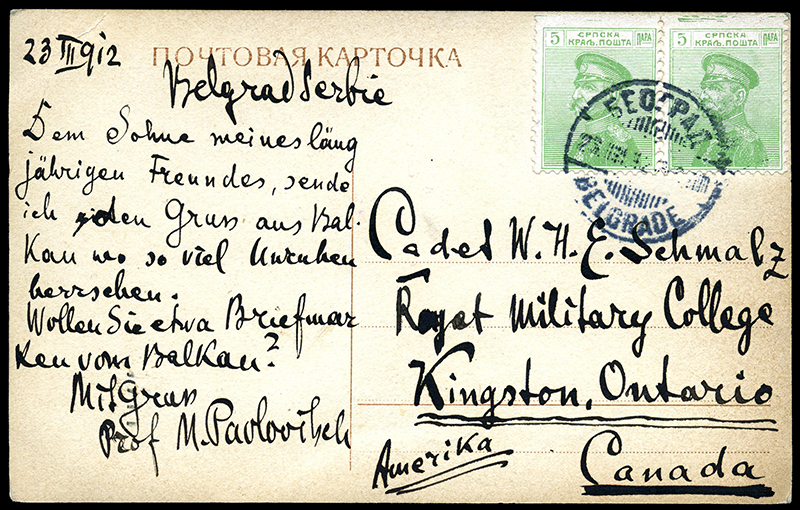 23 III 912
ПОЧТОВАЯ КАРТОЧКА
Belgrad Serbie
Dem Sohne meines läng
jährigen Freundes, sende
ich den Gruss aus Bal-
kan wo so viel Unruhen
herrschen.
Wollen Sie etwa Briefmar
ken vom Balkan?
Mit Gruss
Prof M. Pavlovitsch
5 СРПСКА ПАРА
КРАЉ. ПОШТА
5 СРПСКА ПАРА
КРАЉ. ПОШТА
БЕОГРАД
BELGRADE
Cadet W. H. E. Schmalz
Royal Military College
Kingston, Ontario
Amerika
Canada